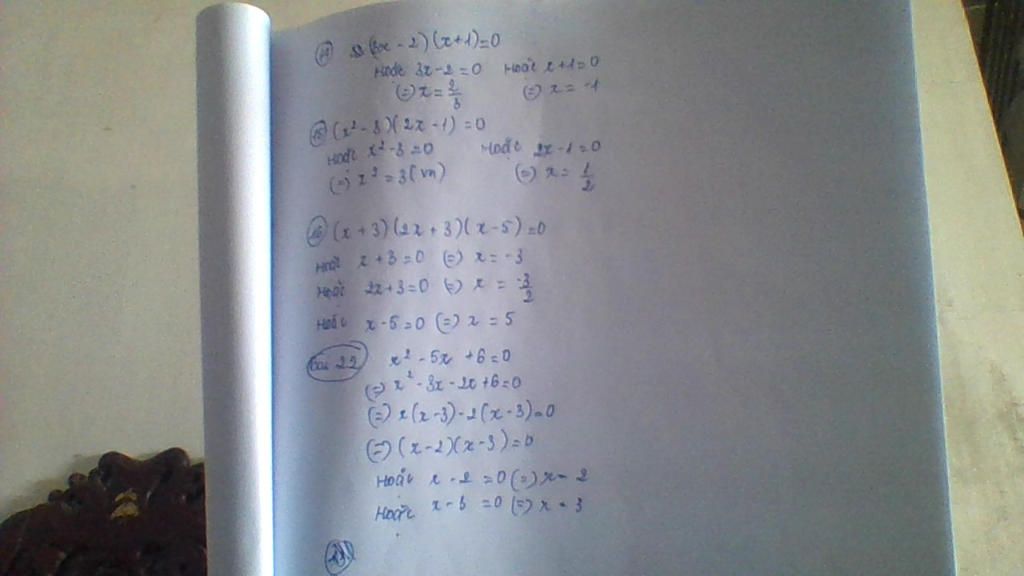 14 (3x - 2)(x+1)=0
Hoặc 3x-2=0 Hoặc x+1=0
(=) x = 2/3 (=) x = -1
15 (x² - 3)(2x - 1) = 0
Hoặc x² - 3 = 0 Hoặc 2x - 1 = 0
(=) x² = 3 (vn) (=) x = 1/2
16 (x + 3)(2x + 3)(x - 5) = 0
Hoặc x + 3 = 0 (=) x = -3
Hoặc 2x + 3 = 0 (=) x = -3/2
Hoặc x - 5 = 0 (=) x = 5
Bài 22 x² - 5x + 6 = 0
(=) x² - 3x - 2x + 6 = 0
(=) x(x - 3) - 2(x - 3) = 0
(=) (x - 2)(x - 3) = 0
Hoặc x - 2 = 0 (=) x = 2
Hoặc x - 3 = 0 (=) x = 3